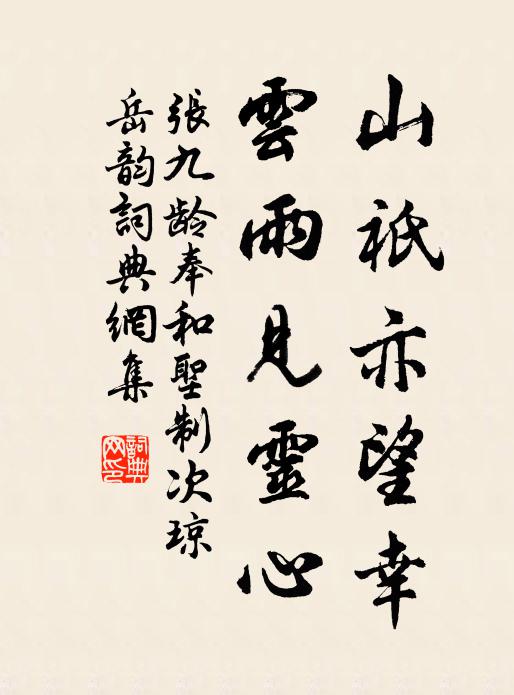 山祇亦望幸
雲雨見靈心
張九龄奉和聖制次琼
岳韵詞典網集
詞典
网印